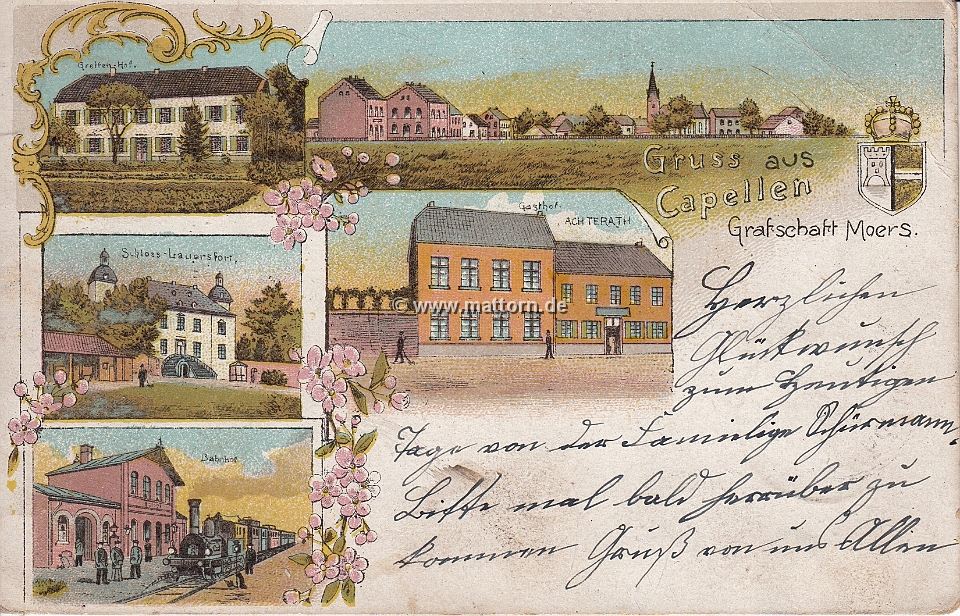 Greiten-Hof.
Gruss aus
Capellen
Grafschaft Moers.
Schloss-Lauersfort,
Gasthof
ACHTERATH
© www.mattorn.de
Bahnhof
Herzlichen
Glückwunsch
zum heutigen
Tage von der Familige Schürmann.
Bitte mal bald herrüber zu
kommen Gruß von uns Allen